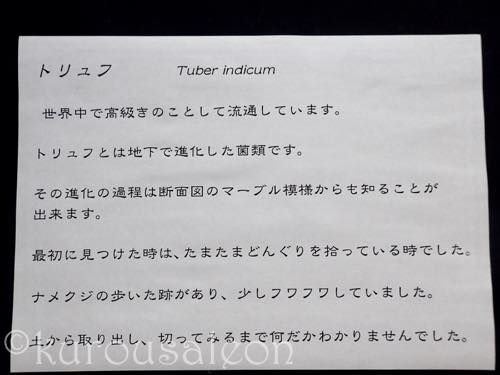 トリュフ Tuber indicum
世界中で高級きのことして流通しています。
トリュフとは地下で進化した菌類です。
その進化の過程は断面図のマーブル模様からも知ることが
出来ます。
最初に見つけた時は、たまたまどんぐりを拾っている時でした。
ナメクジの歩いた跡があり、少しフワフワしていました。
土から取り出し、切ってみるまで何だかわかりませんでした。
©kurousaleon